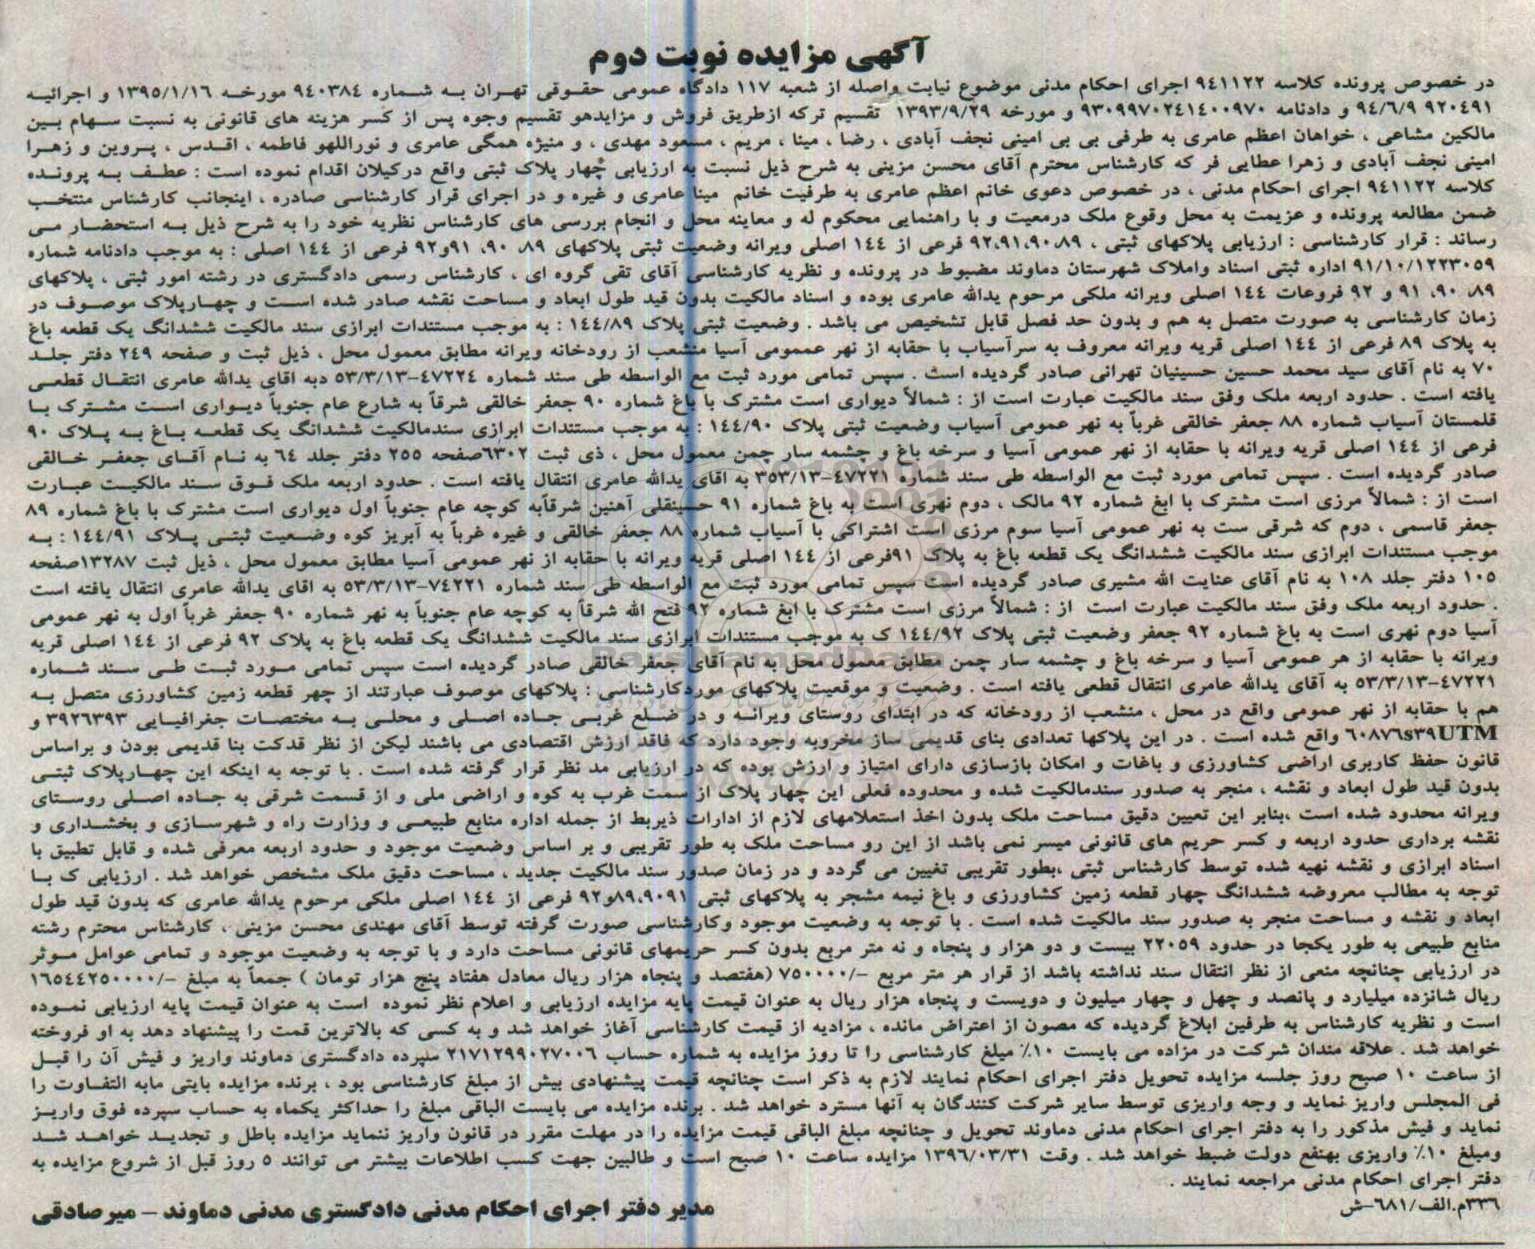 آگهی مزایده نوبت دوم
در خصوص پرونده کلاسه ۹۴۱۱۲۲ اجرای احکام مدنی موضوع نیابت واصله از شعبه ۱۱۷ دادگاه عمومی حقوقی تهران به شماره ۹۴۰۳۸۴ مورخه ۱۳۹۵/۱/۱۶ و اجرائیه
۹۲۰۴۹۱ ۹۴/۶/۹ و دادنامه ۹۳۰۹۹۷۰۲۴۱۴۰۰۹۷۰ و مورخه ۱۳۹۳/۹/۲۹ تقسیم ترکه ازطریق فروش و مزایدهو تقسیم وجوه پس از کسر هزینه های قانونی به نسبت سهام بین
مالکین مشاعی ، خواهان اعظم عامری به طرفی بی بی امینی نجف آبادی ، رضا ، مینا ، مریم ، مسعود مهدی ، و منیژه همگی عامری و نوراللهو فاطمه ، اقدس ، پروین و زهرا
امینی نجف آبادی و زهرا عطایی فر که کارشناس محترم آقای محسن مزینی به شرح ذیل نسبت به ارزیابی چهار پلاک ثبتی واقع درکیلان اقدام نموده است : عطف به پرونده
کلاسه ۹۴۱۱۲۲ اجرای احکام مدنی ، در خصوص دعوی خانم اعظم عامری به طرفیت خانم مینا عامری و غیره و در اجرای قرار کارشناسی صادره ، اینجانب کارشناس منتخب
ضمن مطالعه پرونده و عزیمت به محل وقوع ملک درمعیت و با راهنمایی محکوم له و معاینه محل و انجام بررسی های کارشناس نظریه خود را به شرح ذیل به استحضار می
رساند : قرار کارشناسی : ارزیابی پلاکهای ثبتی ، ۹۲،۹۱،۹۰،۸۹ فرعی از ۱۴۴ اصلی ویرانه وضعیت ثبتی پلاکهای ۸۹، ۹۰، ۹۱و۹۲ فرعی از ۱۴۴ اصلی : به موجب دادنامه شماره
۹۱/۱۰/۱۲۲۳۰۵۹ اداره ثبتی اسناد واملاک شهرستان دماوند مضبوط در پرونده و نظریه کارشناسی آقای تقی گروه ای ، کارشناس رسمی دادگستری در رشته امور ثبتی ، پلاکهای
۸۹، ۹۰، ۹۱ و ۹۲ فروعات ۱۴۴ اصلی ویرانه ملکی مرحوم یدالله عامری بوده و اسناد مالکیت بدون قید طول ابعاد و مساحت نقشه صادر شده است و چهارپلاک موصوف در
زمان کارشناسی به صورت متصل به هم و بدون حد فصل قابل تشخیص می باشد . وضعیت ثبتی پلاک ۱۴۴/۸۹ : به موجب مستندات ابرازی سند مالکیت ششدانگ یک قطعه باغ
به پلاک ۸۹ فرعی از ۱۴۴ اصلی قریه ویرانه معروف به سرآسیاب با حقابه از نهر عممومی آسیا منشعب از رودخانه ویرانه مطابق معمول محل ، ذیل ثبت و صفحه ۲۴۹ دفتر جلد
۷۰ به نام آقای سید محمد حسین حسینیان تهرانی صادر گردیده است . سپس تمامی مورد ثبت مع الواسطه طی سند شماره ۴۷۲۲۴-۵۳/۳/۱۳ دبه اقای یدالله عامری انتقال قطعی
یافته است . حدود اربعه ملک وفق سند مالکیت عبارت است از : شمالاً دیواری است مشترک با باغ شماره ۹۰ جعفر خالقی شرقاً به شارع عام جنوباً دیواری است مشترک با
قلمستان آسیاب شماره ۸۸ جعفر خالقی غرباً به نهر عمومی آسیاب وضعیت ثبتی پلاک ۱۴۴/۹۰ : به موجب مستندات ابرازی سندمالکیت ششدانگ یک قطعه باغ به پلاک ۹۰
فرعی از ۱۴۴ اصلی قریه ویرانه با حقابه از نهر عمومی آسیا و سرخه باغ و چشمه سار چمن معمول محل ، ذی ثبت ۶۳۰۲صفحه ۲۵۵ دفتر جلد ۶۴ به نام آقای جعفر خالقی
صادر گردیده است . سپس تمامی مورد ثبت مع الواسطه طی سند شماره ۴۷۲۲۱-۳۵۳/۱۳ به اقای یدالله عامری انتقال یافته است . حدود اربعه ملک فوق سند مالکیت عبارت
است از : شمالاً مرزی است مشترک با ابغ شماره ۹۲ مالک ، دوم نهری است به باغ شماره ۹۱ حسینقلی آهنین شرقاًبه کوچه عام جنوباً اول دیواری است مشترک با باغ شماره ۸۹
جعفر قاسمی ، دوم که شرقی ست به نهر عمومی آسیا سوم مرزی است اشتراکی با آسیاب شماره ۸۸ جعفر خالقی و غیره غرباً به آبریز کوه وضعیت ثبتی پلاک ۱۴۴/۹۱ : به
موجب مستندات ابرازی سند مالکیت ششدانگ یک قطعه باغ به پلاک ۹۱فرعی از ۱۴۴ اصلی قریه ویرانه با حقابه از نهر عمومی آسیا مطابق معمول محل ، ذیل ثبت ۱۳۲۸۷صفحه
۱۰۵ دفتر جلد ۱۰۸ به نام آقای عنایت الله مشیری صادر گردیده است سپس تمامی مورد ثبت مع الواسطه طی سند شماره ۷۴۲۲۱-۵۳/۳/۱۳ به اقای یدالله عامری انتقال یافته است
. حدود اربعه ملک وفق سند مالکیت عبارت است از : شمالاً مرزی است مشترک با ابغ شماره ۹۲ فتح الله شرقاً به کوچه عام جنوباً به نهر شماره ۹۰ جعفر غرباً اول به نهر عمومی
آسیا دوم نهری است به باغ شماره ۹۲ جعفر وضعیت ثبتی پلاک ۱۴۴/۹۲ ک به موجب مستندات ابرازی سند مالکیت ششدانگ یک قطعه باغ به پلاک ۹۲ فرعی از ۱۴۴ اصلی قریه
ویرانه با حقابه از هر عمومی آسیا و سرخه باغ و چشمه سار چمن مطابق معمول محل به نام آقای جعفر خالقی صادر گردیده است سپس تمامی مورد ثبت طی سند شماره
۴۷۲۲۱-۵۳/۳/۱۳ به آقای یدالله عامری انتقال قطعی یافته است . وضعیت و موقعیت پلاکهای موردکارشناسی : پلاکهای موصوف عبارتند از چهر قطعه زمین کشاورزی متصل به
هم با حقابه از نهر عمومی واقع در محل ، منشعب از رودخانه که در ابتدای روستای ویرانه و در ضلع غربی جاده اصلی و محلی به مختصات جغرافیایی ۳۹۲۶۳۹۳ و
۶۰۸۷۶s۳۹UTM واقع شده است . در این پلاکها تعدادی بنای قدیمی ساز مخروبه وجود دارد که فاقد ارزش اقتصادی می باشند لیکن از نظر قدکت بنا قدیمی بودن و براساس
قانون حفظ کاربری اراضی کشاورزی و باغات و امکان بازسازی دارای امتیاز و ارزش بوده که در ارزیابی مد نظر قرار گرفته شده است . با توجه به اینکه این چهارپلاک ثبتی
بدون قید طول ابعاد و نقشه ، منجر به صدور سندمالکیت شده و محدوده فعلی این چهار پلاک از سمت غرب به کوه و اراضی ملی و از قسمت شرقی به جاده اصلی روستای
ویرانه محدود شده است ،بنابر این تعیین دقیق مساحت ملک بدون اخذ استعلامهای لازم از ادارات ذیربط از جمله اداره منابع طبیعی و وزارت راه و شهرسازی و بخشداری و
نقشه برداری حدود اربعه و کسر حریم های قانونی میسر نمی باشد از این رو مساحت ملک به طور تقریبی و بر اساس وضعیت موجود و حدود اربعه معرفی شده و قابل تطبیق با
اسناد ابرازی و نقشه تهیه شده توسط کارشناس ثبتی ،بطور تقریبی تغیین می گردد و در زمان صدور سند مالکیت جدید ، مساحت دقیق ملک مشخص خواهد شد . ارزیابی ک با
توجه به مطالب معروضه ششدانگ چهار قطعه زمین کشاورزی و باغ نیمه مشجر به پلاکهای ثبتی ۸۹،۹۰۹۱و۹۲ فرعی از ۱۴۴ اصلی ملکی مرحوم یدالله عامری که بدون قید طول
ابعاد و نقشه و مساحت منجر به صدور سند مالکیت شده است . با توجه به وضعیت موجود وکارشناسی صورت گرفته توسط آقای مهندی محسن مزینی ، کارشناس محترم رشته
منابع طبیعی به طور یکجا در حدود ۲۲۰۵۹ بیست و دو هزار و پنجاه و نه متر مربع بدون کسر حریمهای قانونی مساحت دارد و با توجه به وضعیت موجود و تمامی عوامل موثر
در ارزیابی چنانچه منعی از نظر انتقال سند نداشته باشد از قرار هر متر مربع –/۷۵۰۰۰۰ (هفتصد و پنجاه هزار ریال معادل هفتاد پنج هزار تومان ) جمعاً به مبلغ –/۱۶۵۴۴۲۵۰۰۰۰
ریال شانزده میلیارد و پانصد و چهل و چهار میلیون و دویست و پنجاه هزار ریال به عنوان قیمت پایه مزایده ارزیابی و اعلام نظر نموده است به عنوان قیمت پایه ارزیابی نموده
است و نظریه کارشناس به طرفین ابلاغ گردیده که مصون از اعتراض مانده ، مزادیه از قیمت کارشناسی آغاز خواهد شد و به کسی که بالاترین قمت را پیشنهاد دهد به او فروخته
خواهد شد . علاقه مندان شرکت در مزاده می بایست ۱۰٪ مبلغ کارشناسی را تا روز مزایده به شماره حساب ۲۱۷۱۲۹۹۰۲۷۰۰۶ سپرده دادگستری دماوند واریز و فیش آن را قبل
از ساعت ۱۰ صبح روز جلسه مزایده تحویل دفتر اجرای احکام نمایند لازم به ذکر است چنانچه قیمت پیشنهادی بیش از مبلغ کارشناسی بود ، برنده مزایده بایتی مابه التفاوت را
فی المجلس واریز نماید و وجه واریزی توسط سایر شرکت کنندگان به آنها مسترد خواهد شد . برنده مزایده می بایست الباقی مبلغ را حداکثر یکماه به حساب سپرده فوق واریز
نماید و فیش مذکور را به دفتر اجرای احکام مدنی دماوند تحویل و چنانچه مبلغ الباقی قیمت مزایده را در مهلت مقرر در قانون واریز ننماید مزایده باطل و تجدید خواهد شد
ومبلغ ۱۰٪ واریزی بهنفع دولت ضبط خواهد شد . وقت ۱۳۹۶/۰۳/۳۱ مزایده ساعت ۱۰ صبح است و طالبین جهت کسب اطلاعات بیشتر می توانند ۵ روز قبل از شروع مزایده به
دفتر اجرای احکام مدنی مراجعه نمایند .
۳۳۶م.الف/۶۸۱-ش
مدیر دفتر اجرای احکام مدنی دادگستری مدنی دماوند – میرصادقی